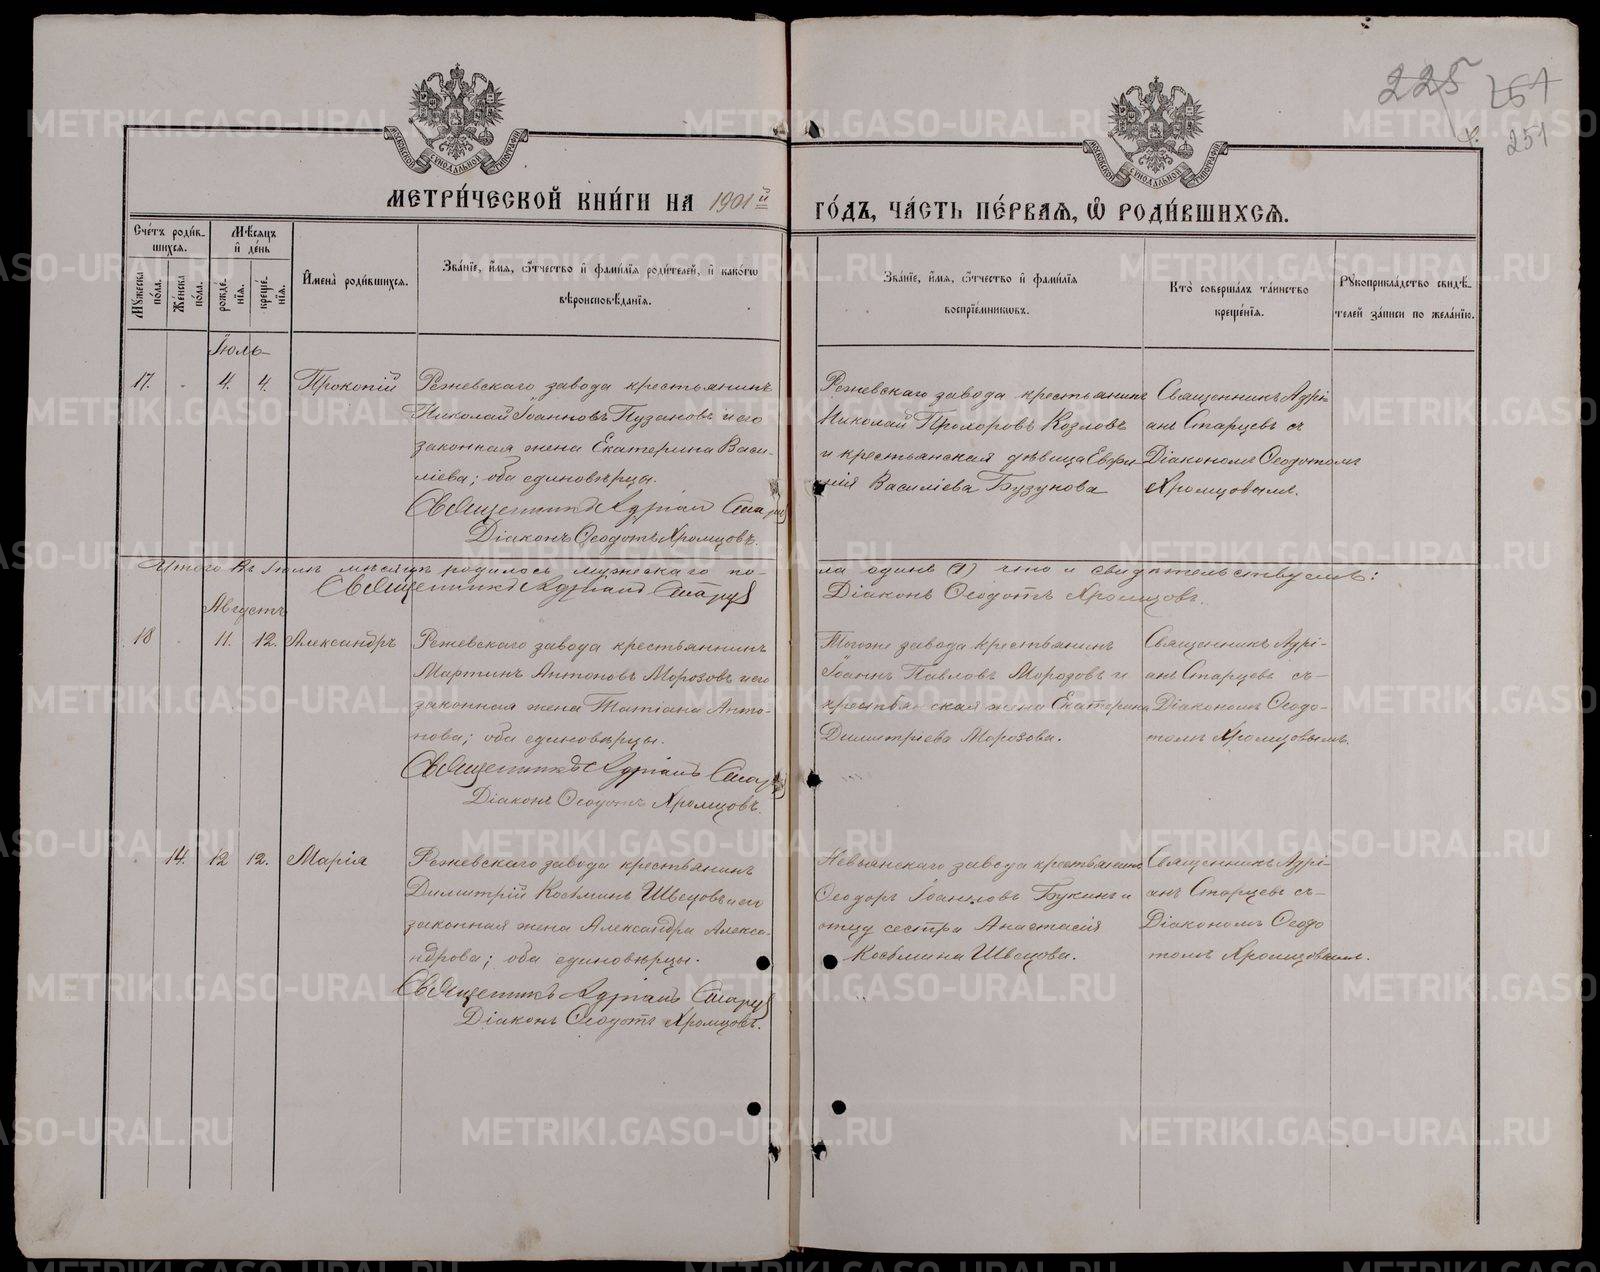 225 261
251
МОСКОВСКОЙ СѴНОДАЛЬНОЙ ТИПОГРАФІИ
МОСКОВСКОЙ СѴНОДАЛЬНОЙ ТИПОГРАФІИ
МЕТРИ́ЧЕСКОЙ КНИ́ГИ НА 1901й
ГО́ДЪ, ЧА́СТЬ ПЕ́РВАЯ, Ѽ РОДИ́ВШИХСЯ.
Сче́тъ роди́в-
шихся.
Мѣсяцъ
и де́нь
Мꙋжеска по́ла.
Же́нска по́ла.
рожде́-
нія.
креще́-
нія.
Имена̀ роди́вшихся.
Зва́ніе, и́мя, ѻ́тчество и фами́лія роди́телей, и како́гѡ
вѣроисповѣ́данія.
Зва́ніе, и́мя, ѻ́тчество и фами́лія
воспріе́мникѡвъ.
Кто̀ соверша́лъ та́инство
креще́нія.
Рꙋкоприкла́дство свидѣ́-
телей за́писи по жела́нію.
Іюль
17. 4. 4. Прокопій
Режевскаго завода крестьянинъ
Николай Іоанновъ Пузановъ и его
законная жена Екатерина Васи-
ліева; оба единовѣрцы.
Священникъ Адріан Старц
Діаконъ Ѳеодотъ Хромцовъ.
Режевскаго завода крестьянинъ
Николай Прохоровъ Козловъ
и крестьянская дѣвица Евфи-
мія Василіева Бузунова
Священникъ Адрі
анъ Старцевъ съ
Діакономъ Ѳеодотомъ
Хромцовымъ.
Итого въ Іюлѣ мѣсяцѣ родилось мужескаго по-
ла одинъ (1) что и свидѣтельствуемъ:
Священникъ Адріан Старц
Діаконъ Ѳеодотъ Хромцовъ.
Августъ
18 11. 12. Александръ
Режевскаго завода крестьянинъ
Мартинъ Антоновъ Морозовъ и его
законная жена Татіана Анто-
нова; оба единовѣрцы.
Священникъ Адріанъ Стар
Діаконъ Ѳеодотъ Хромцовъ.
Тогоже завода крестьянинъ
Іоаннъ Павловъ Морозовъ и
крестьянская жена Екатерина
Димитріева Морозова.
Священникъ Адрі-
анъ Старцевъ съ-
Діакономъ Ѳеодо-
томъ Хромцовымъ.
14. 12 12. Марія
Режевскаго завода крестьянинъ
Димитрій Косьминъ Швецовъ и его
законная жена Александра Алекса-
ндрова; оба единовѣрцы.
Священникъ Адріанъ Старц
Діаконъ Ѳеодотъ Хромцовъ.
Невьянскаго завода крестьянинъ
Ѳеодоръ Іоанновъ Букинъ и
отцу сестра Анастасія
Косьмина Швецова.
Священникъ Адрі-
анъ Старцевъ съ-
Діакономъ Ѳеодо
томъ Хромцовымъ.
METRIKI.GASO-URAL.RU